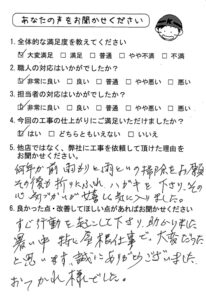 あなたの声をお聞かせください
1. 全体的な満足度を教えてください
☑ 大変満足 □ 満足 □ 普通 □ やや不満 □ 不満
2. 職人の対応はいかがでしたか?
☑ 非常に良い □ 良い □ 普通 □ やや悪い □ 悪い
3. 担当者の対応はいかがでしたか?
☑ 非常に良い □ 良い □ 普通 □ やや悪い □ 悪い
4. 今回の工事の仕上がりにご満足いただけましたか?
☑ はい □ どちらともいえない □ いいえ
5. 他店ではなく、弊社に工事を依頼して頂けた理由をお聞かせください。
何年か前 雨もりと雨といの掃除をお願
その後折りにふれ ハガキを下さり、その
心あづかいが気に入りました。
6. 良かった点・改善してほしい点があればお聞かせください
すぐ行動を起こして下さり、助かりました
暑い中 特に屋根仕事で、大変だった
と思います。誠にありがとうございました
おつかれ様でした。